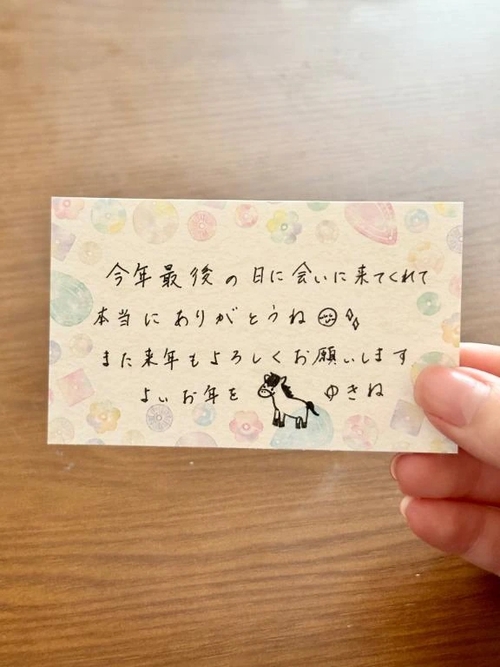 今年最後の日に会いに来てくれて
本当にありがとうね
また来年もよろしくお願いします
よいお年を ゆきね